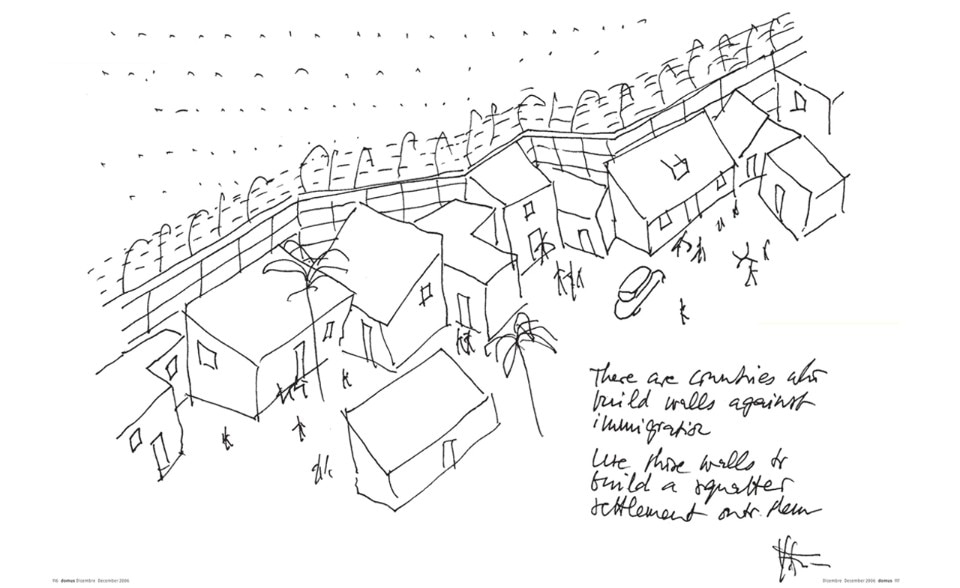 There are countries who
build walls against
immigration
Use those walls to
build a squatter
settlement onto them
116 domus Dicembre December 2006
Dicembre December 2006 domus 117